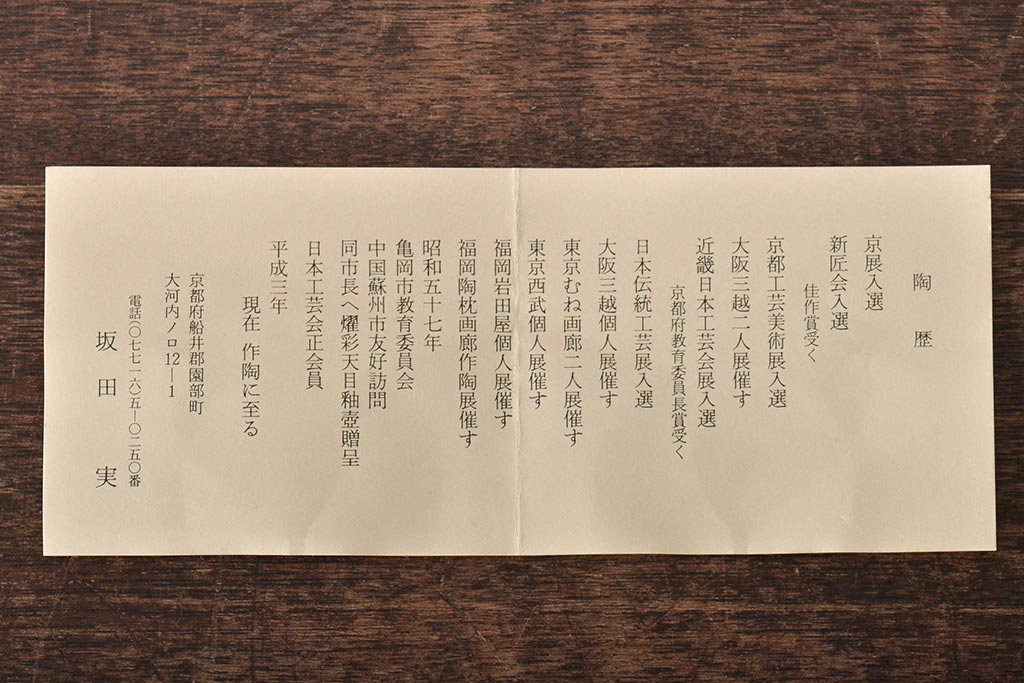 陶歴
京展入選
新匠会入選
佳作賞受く
京都工芸美術展入選
大阪三越二人展催す
近畿日本工芸会展入選
京都府教育委員長賞受く
日本伝統工芸展入選
大阪三越個人展催す
東京むね画廊二人展催す
東京西武個人展催す
福岡岩田屋個人展催す
福岡陶枕画廊作陶展催す
昭和五十七年
亀岡市教育委員会
中国蘇州市友好訪問
同市長へ燿彩天目釉壺贈呈
日本工芸会正会員
平成三年
現在 作陶に至る
京都府船井郡園部町
大河内ノ口12—1
電話(〇七七一六)五—〇二五〇番
坂田 実